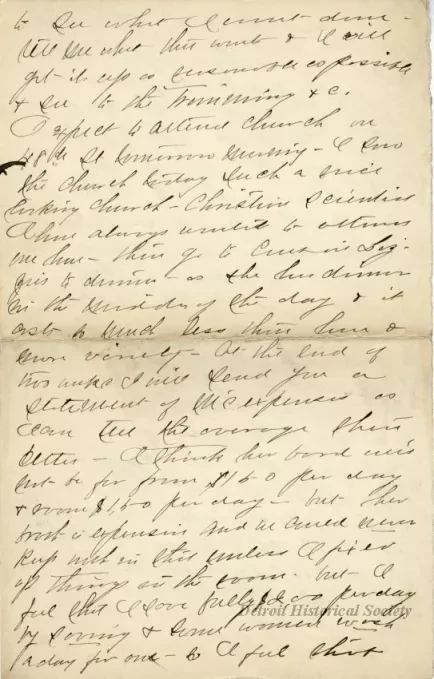 to see what I must done -
tell me what this want & I will
get it up as reasonable as possible
& see to the trimming & c.
I expect to attend church on
48th St tomorrow morning - I saw
the church today such a nice
looking church - Christian Scientist
I have always wanted to attend
one here - then go to Cousin
to dinner - as she has dinner
in the middle of the day & it
costs so much less than here &
more - At the end of
two weeks I will send you a
statement of expenses as
I can tell the average then
better - I think her board will
not be far from $1.50 per day
& room $1.50 per day - but her
is expensive and we could never
keep with in this unless I fixed
up things in the room - but I
feel that I save fully per day
by sewing & some women work
a day for one - so I feel that
Detroit Historical Society